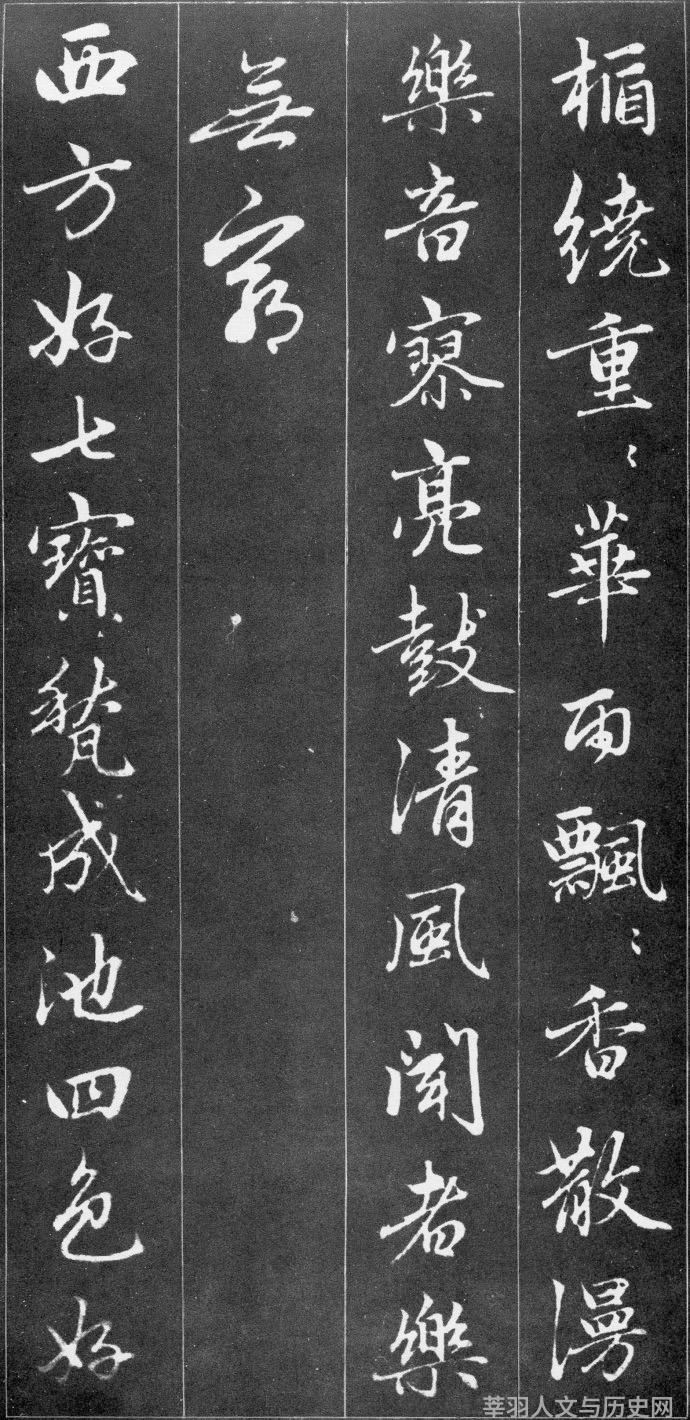 楯繞重〻華雨飄〻香散漫
樂音寥亮鼓清風聞者樂
無窮
西方好七寶甃成池四色好
莘羽人文与历史网